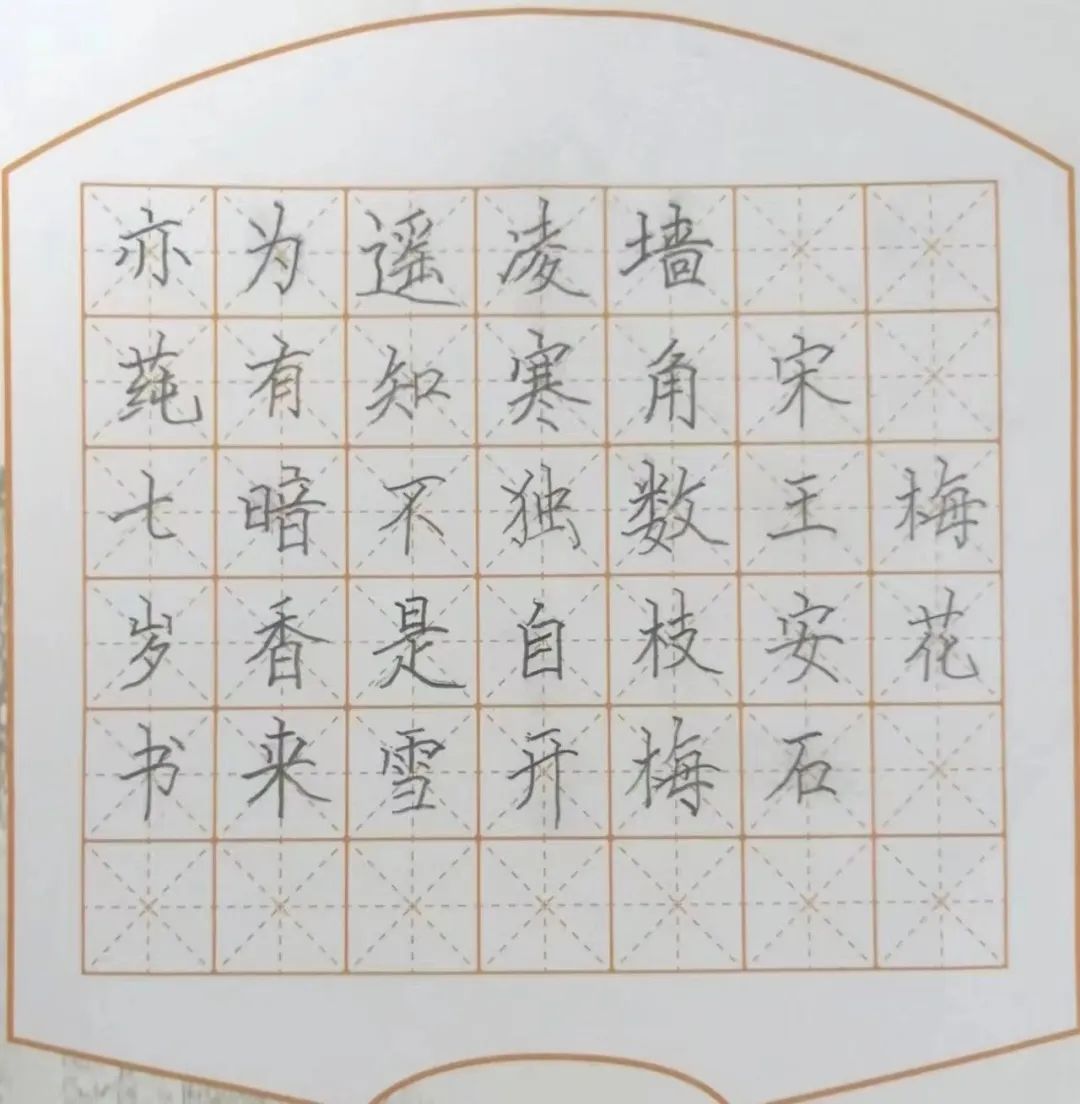 梅花
宋王安石
墙角数枝梅
凌寒独自开
遥知不是雪
为有暗香来
亦莼七岁书